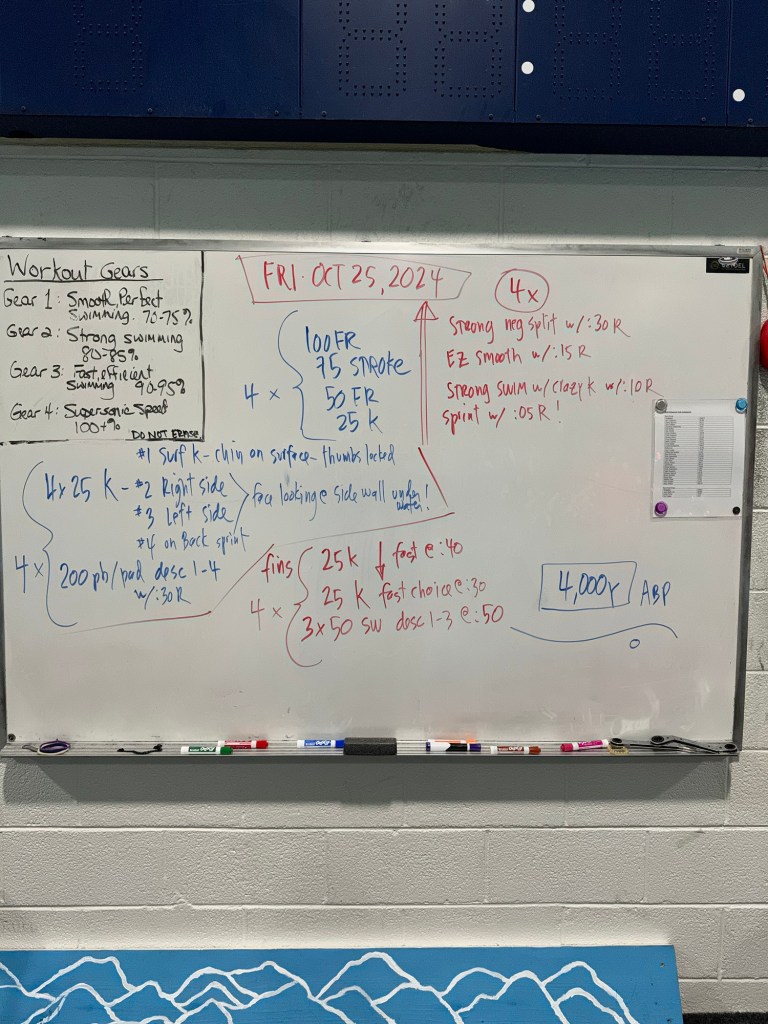 Workout Gears
Gear 1: Smooth, Perfect
Swimming 70-75%
Gear 2: Strong swimming
80-85%
Gear 3: Fast, efficient
swimming 90-95%
Gear 4: Supersonic Speed
100+%
DO NOT ERASE
FRI. OCT 25, 2024
4x
100 FR
75 STROKE
4 x
50 FR
25 K
Strong neg split w/:30 R
EZ smooth w/:15 R
Strong swim w/ crazy k w/:10 R
sprint w/ :05 R!
#1 Surf k - chin on surface - thumbs locked
4x25 K - #2 Right side
#3 Left side
face looking @ side wall under water!
#4 on Back sprint
4x
200 pb/pad desc 1-4
w/:30 R
fins
4x
25 k ↓ fast @ :40
25 K fast choice @ :30
3x50 SW desc 1-3 @ :50
4,000Y
ABP